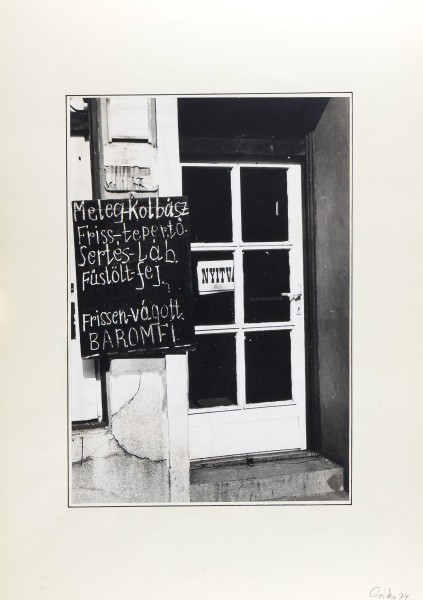 Meleg-Kolbász
Friss-tepertő.
Sertés-Láb,
Füstölt-fej.
Frissen-vágott.
BAROMFI
NYITVA